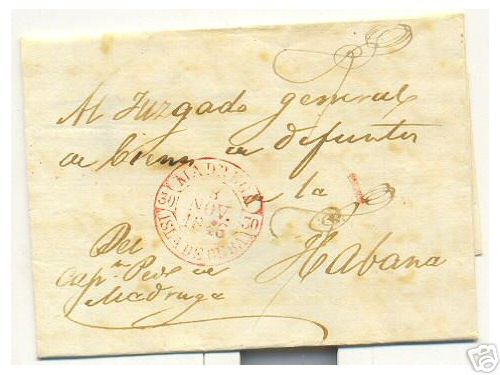 Al Juzgado general
de bienes de difuntos
de la
Habana
Del
Capn. Ped. de
Madruga
MADRUGA
3
NOV.
1846
ISLA DE CUBA
ebY